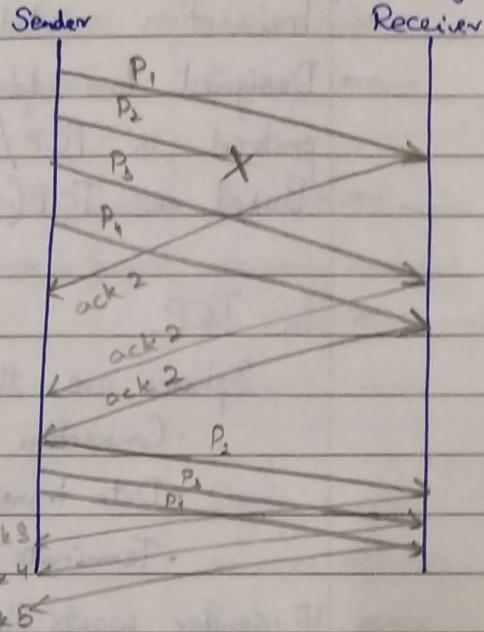 Sender Receiver
P₁
P₂
P₃
P₄
ack 2
ack 2
ack 2
P₂
P₃
P₄
k 3
4
k 5